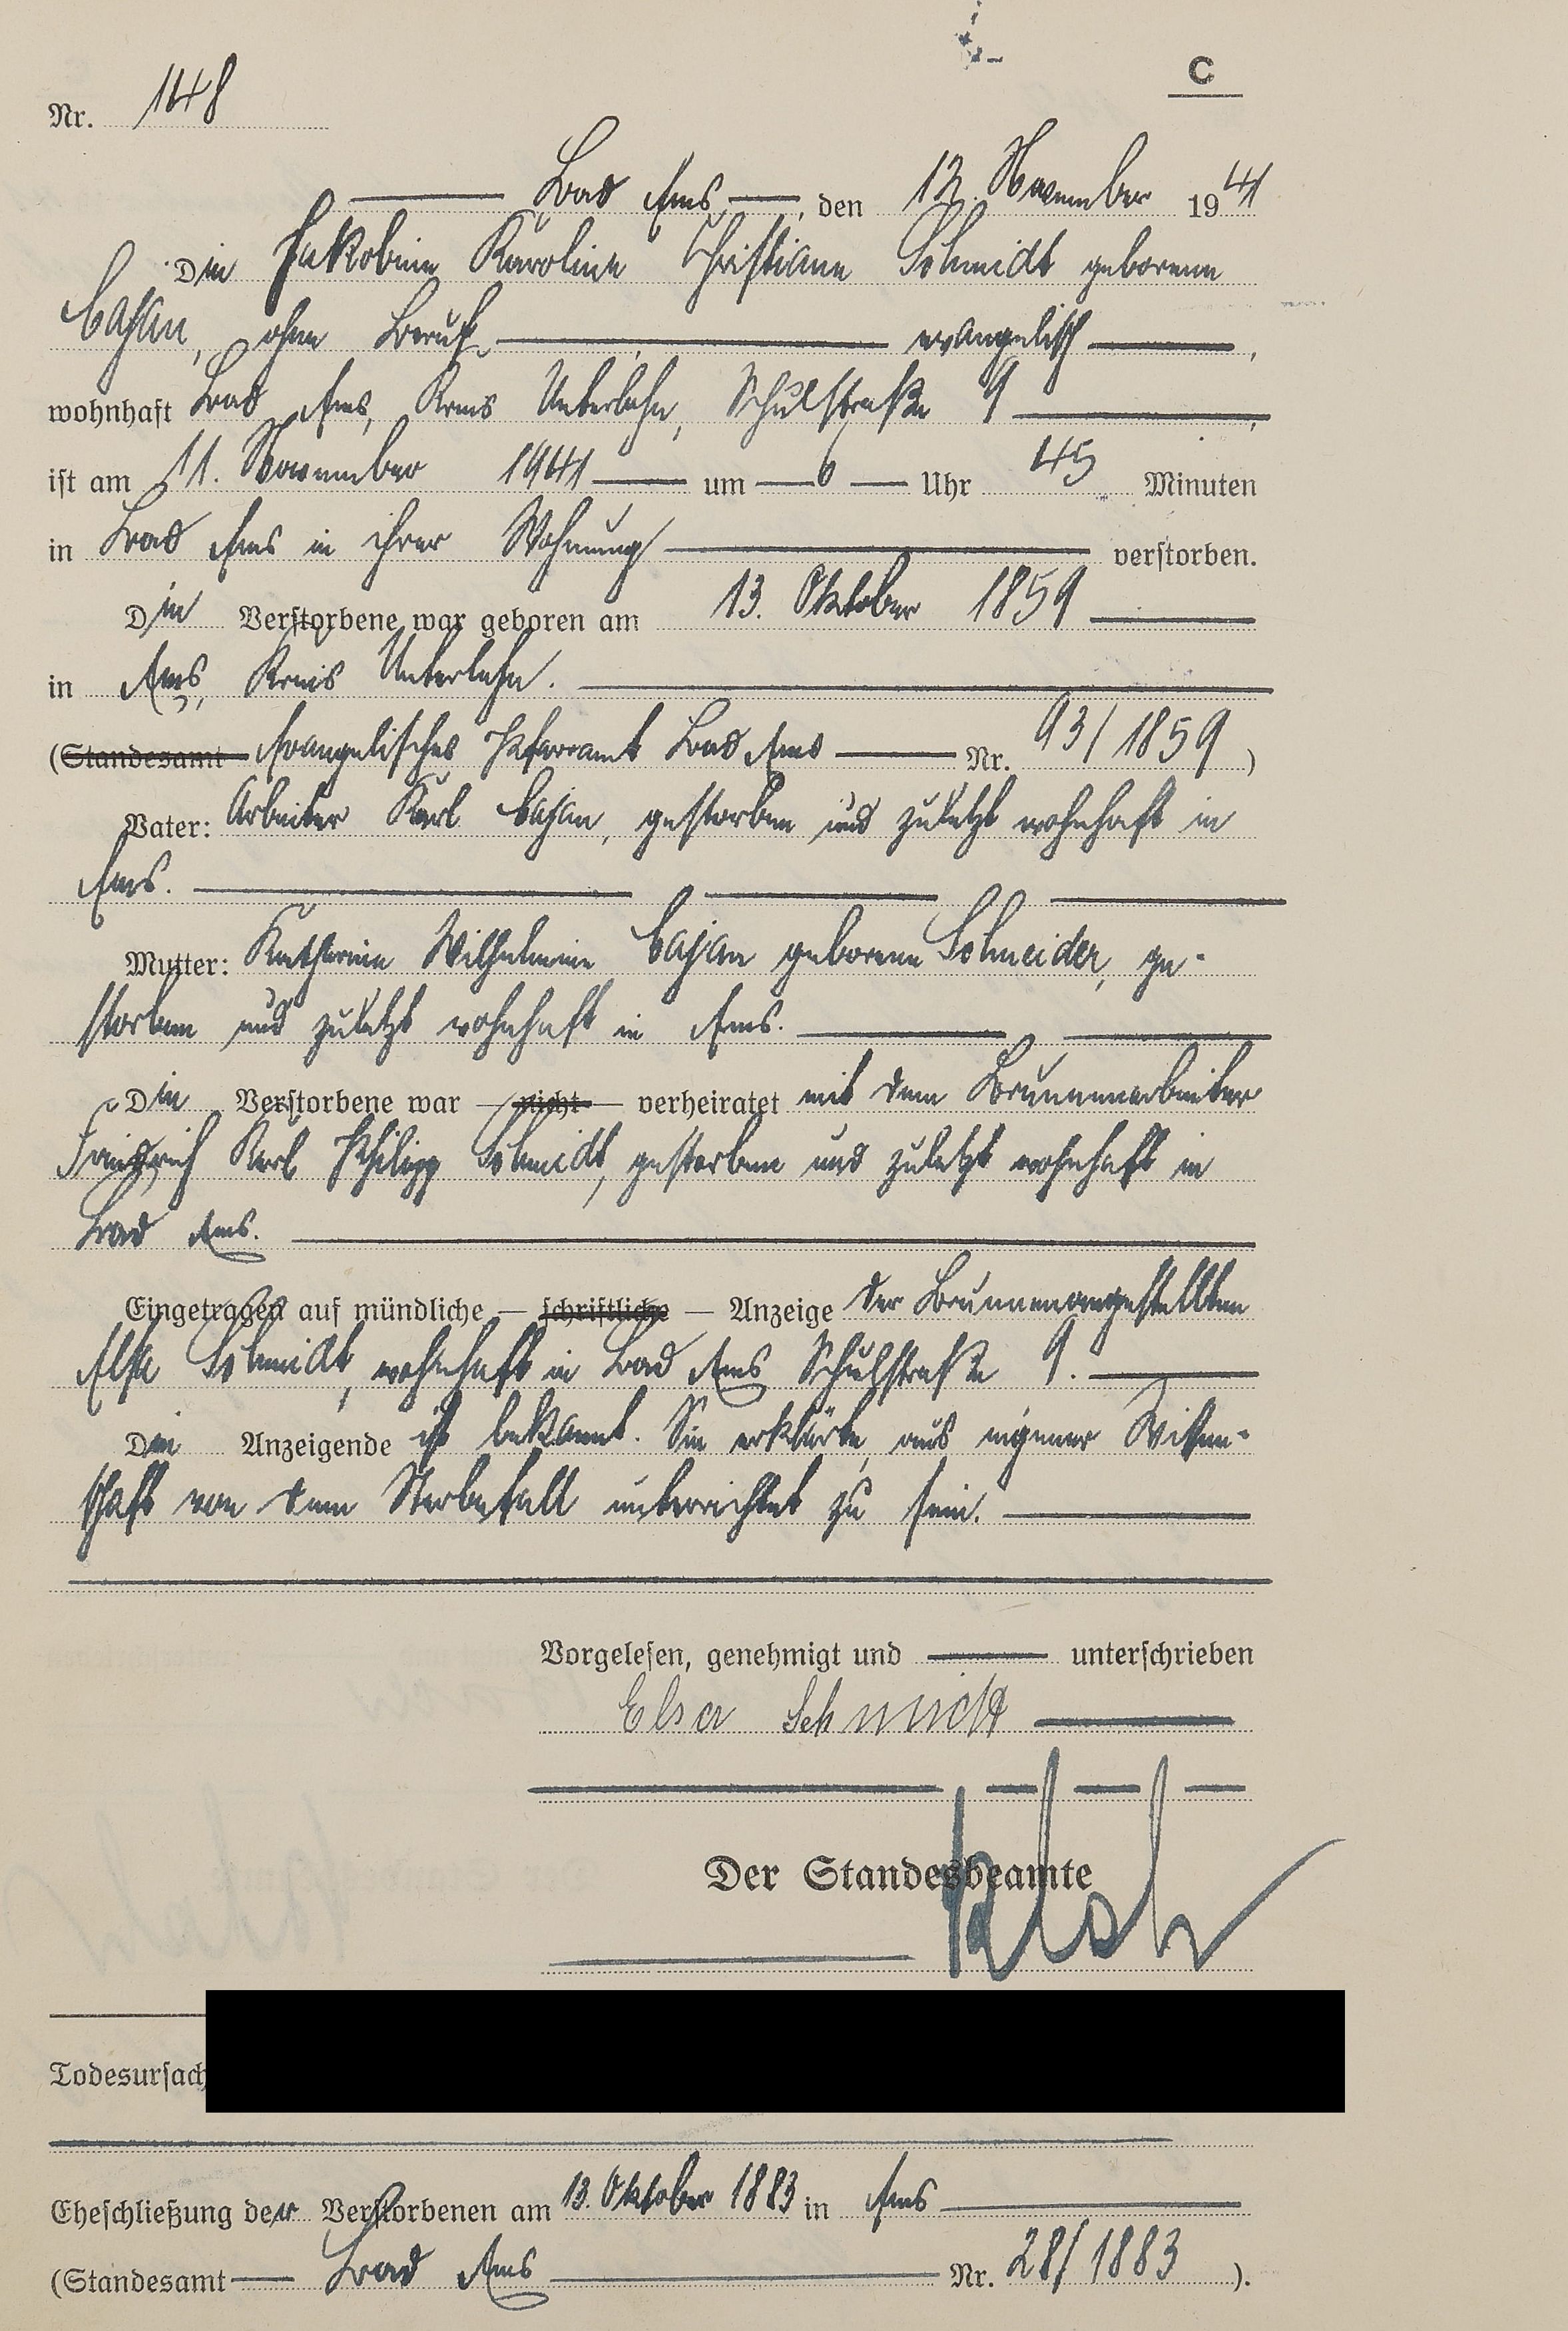 C
Nr. 148
Bad Ems, den 12. November 1941
Die Jakobine Karoline Christiane Schmidt geborene
Cajan, ohne Beruf evangelisch,
wohnhaft Bad Ems, Kreis Unterlahn, Schulstraße 9,
ist am 11. November 1941 um 6 Uhr 45 Minuten
in Bad Ems in ihrer Wohnung verstorben.
Die Verstorbene war geboren am 13. Oktober 1859
in Ems, Kreis Unterlahn.
(Standesamt Evangelisches Pfarramt Bad Ems Nr. 93/1859)
Vater: Arbeiter Karl Cajan, gestorben und zuletzt wohnhaft in
Ems.
Mutter: Katharine Wilhelmine Cajan geborene Schneider, ge-
storben und zuletzt wohnhaft in Ems.
Die Verstorbene war — nicht — verheiratet mit dem Brunnenarbeiter
Karl Philipp Schmidt, gestorben und zuletzt wohnhaft in
Bad Ems.
Eingetragen auf mündliche — schriftliche — Anzeige der Brunnenangestellten
Elsa Schmidt, wohnhaft in Bad Ems Schulstraße 9.
Die Anzeigende ist bekannt. Sie erklärte, aus eigener Wissen-
schaft von dem Sterbefall unterrichtet zu sein.
Vorgelesen, genehmigt und unterschrieben
Elsa Schmidt
Der Standesbeamte
Todesursach
Eheschließung der Verstorbenen am 13. Oktober 1883 in Ems
(Standesamt Bad Ems Nr. 28/1883).